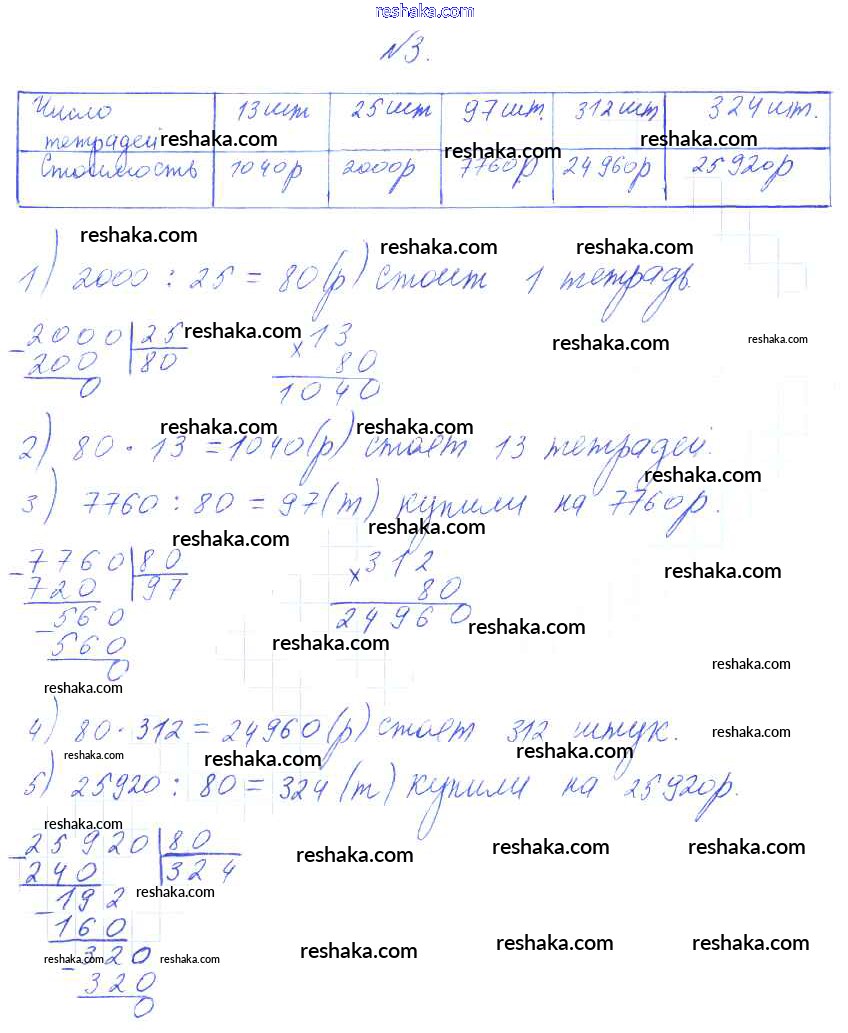 reshaka.com
№3.
Число тетрадей 13 шт 25 шт 97 шт. 312 шт 324 шт.
reshaka.com reshaka.com reshaka.com
Стоимость 1040р 2000р 7760р. 24960р 25920р
reshaka.com reshaka.com reshaka.com
1) 2000 : 25 = 80(р) стоит 1 тетрадь.
reshaka.com reshaka.com reshaka.com
- 2000 | 25 × 13
200 80 80
0 1040
reshaka.com reshaka.com
2) 80 · 13 = 1040(р) стоят 13 тетрадей.
reshaka.com
3) 7760 : 80 = 97(т) купили на 7760р.
reshaka.com reshaka.com
- 7760 | 80 × 312
reshaka.com
720 97 80
- 560 24960
reshaka.com
560
reshaka.com
0
reshaka.com
reshaka.com
4) 80 · 312 = 24960(р) стоят 312 штук.
reshaka.com
reshaka.com reshaka.com reshaka.com
5) 25920 : 80 = 324(т) купили на 25920р.
reshaka.com
- 25920 | 80
reshaka.com reshaka.com reshaka.com
240 324
- 192
reshaka.com
160
- 320
reshaka.com reshaka.com reshaka.com reshaka.com reshaka.com
320
0